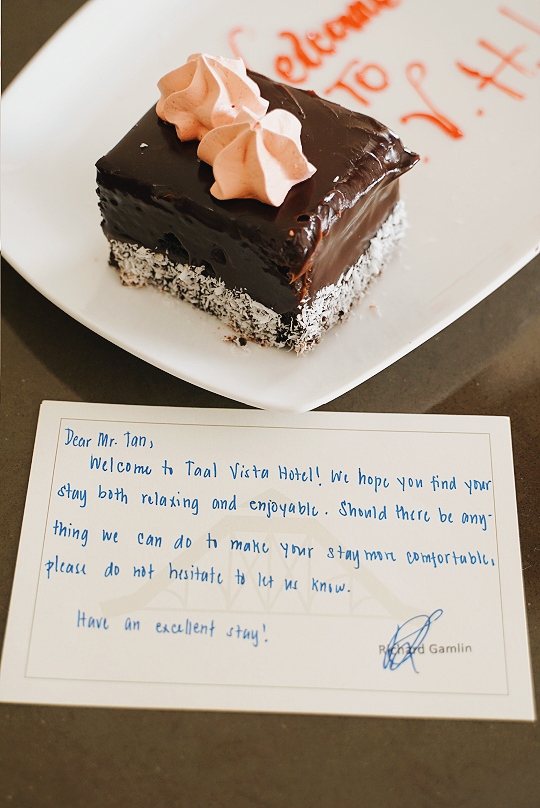 Welcome
TO
V.H!
Dear Mr. Tan,
Welcome to Taal Vista Hotel! We hope you find your
stay both relaxing and enjoyable. Should there be any-
thing we can do to make your stay more comfortable,
please do not hesitate to let us know.
Have an excellent stay!
Richard Gamlin